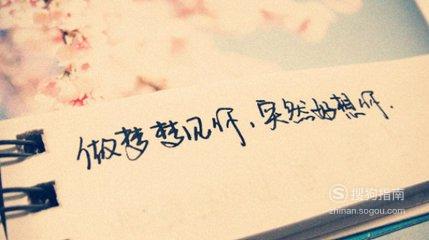 做梦梦见你、突然好想你.
搜狗指南
zhinan.sogou.com